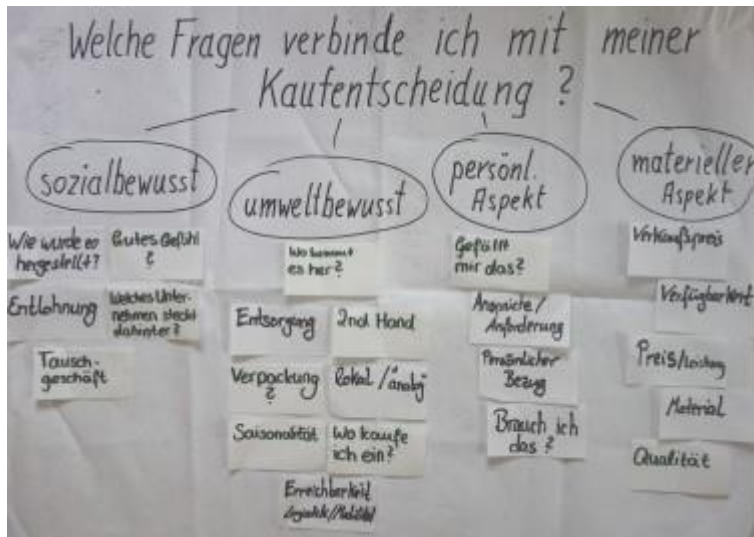 Welche Fragen verbinde ich mit meiner
Kaufentscheidung ?
sozialbewusst
Wie wurde es
hergestellt?
Gutes Gefühl
?
Entlohnung
Welches Unter-
nehmen steckt
dahinter?
Tausch-
geschäft
umweltbewusst
Wo kommt
es her?
Entsorgung
2nd Hand
Verpackung
?
lokal /
Saisonalität
Wo kaufe
ich ein?
Erreichbarkeit
Logistik/Mobilität
persönl.
Aspekt
Gefällt
mir das?
Ansprüche/
Anforderung
Persönlicher
Bezug
Brauch ich
das?
materieller
Aspekt
Verkaufspreis
Verfügbarkeit
Preis/Leistung
Material
Qualität